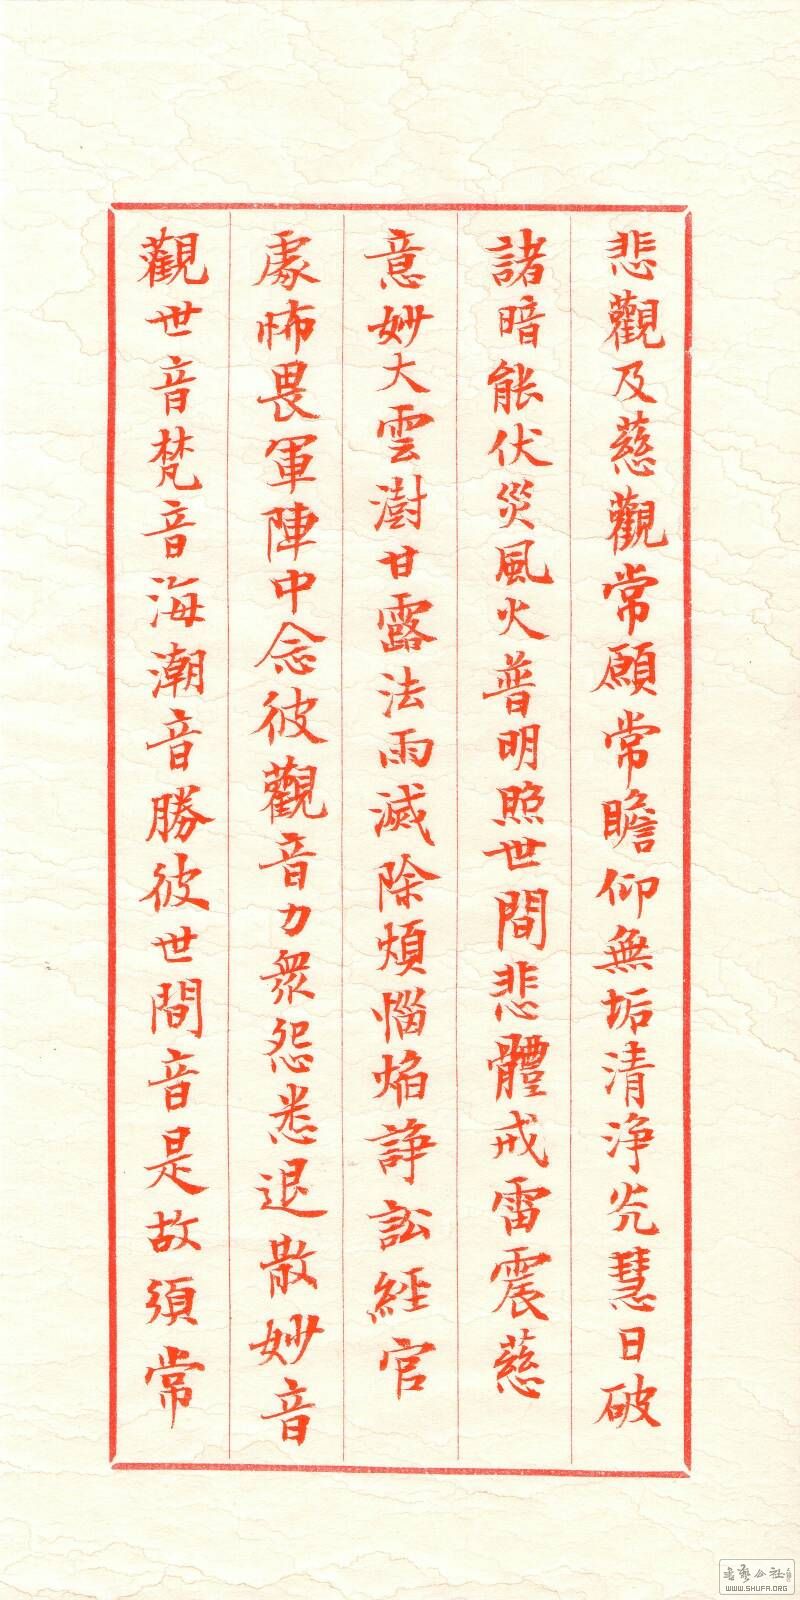 悲觀及慈觀常願常瞻仰無垢清淨光慧日破
諸暗能伏災風火普明照世間悲體戒雷震慈
意妙大雲澍甘露法雨滅除煩惱焰諍訟經官
處怖畏軍陣中念彼觀音力眾怨悉退散妙音
觀世音梵音海潮音勝彼世間音是故須常
書藝公社
WWW.SHUFA.ORG